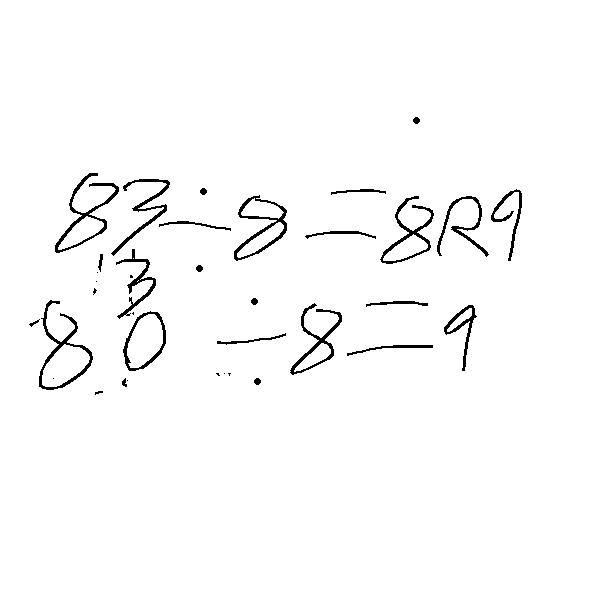 83÷8=8R9
13
80÷8=9